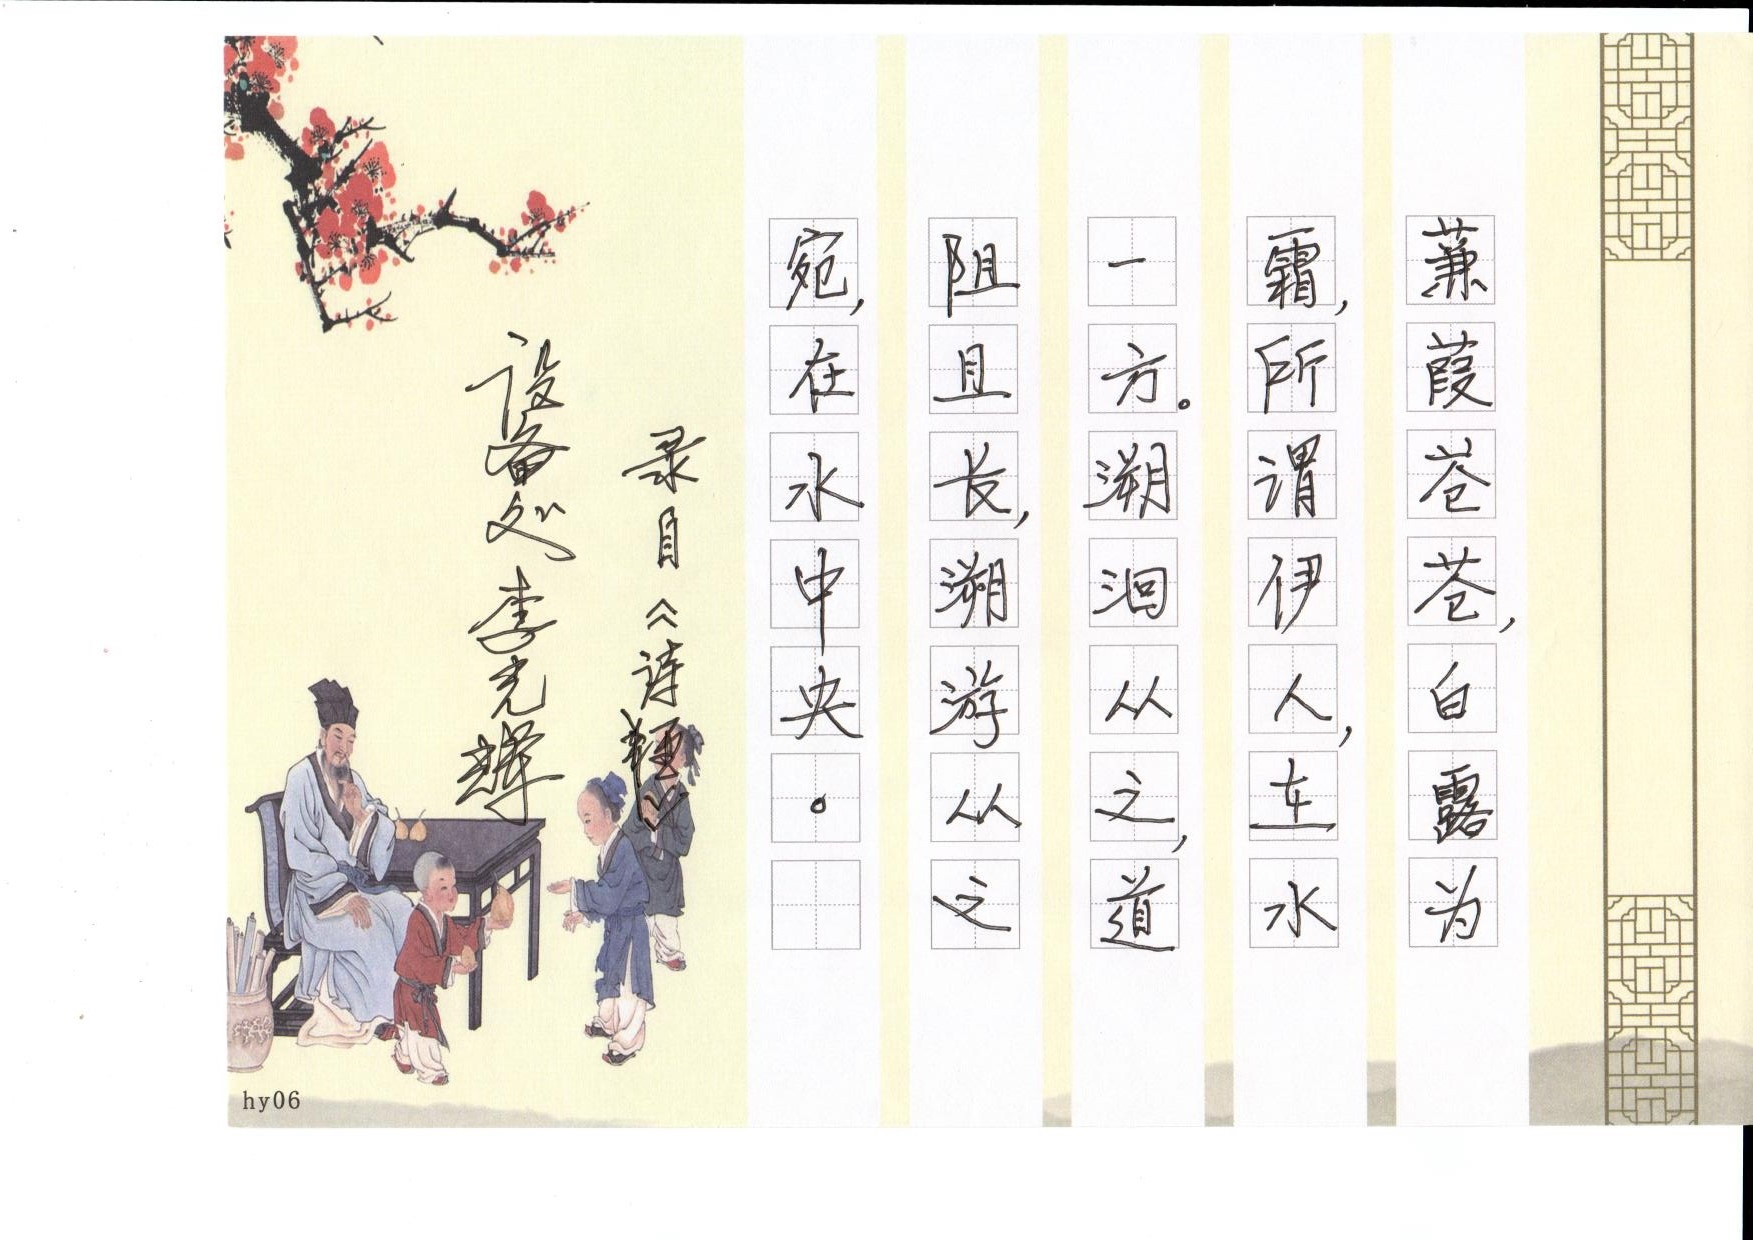 蒹葭苍苍，白露为
霜，所谓伊人，在水
一方。溯洄从之，道
阻且长，溯游从之
宛，在水中央。
录自《诗经》
设备处 李光辉
hy06